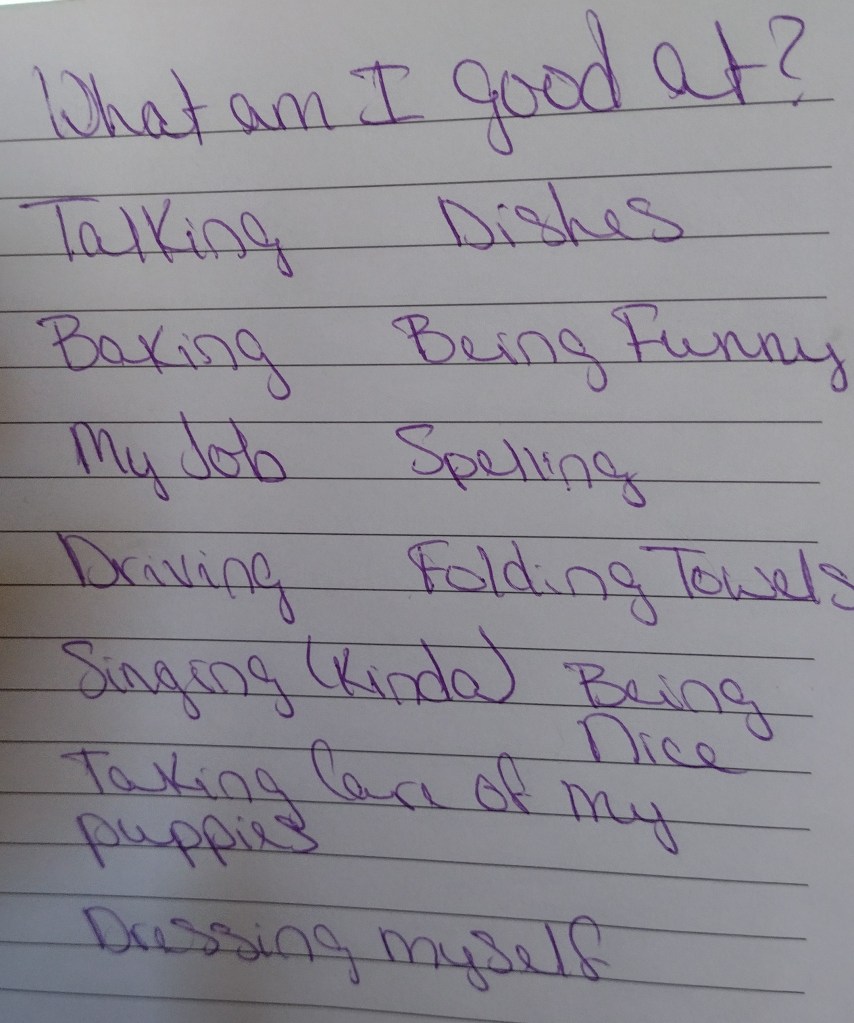 What am I good at?
Talking Dishes
Baking Being Funny
My Job Spelling
Driving Folding Towels
Singing (Kinda) Being
Nice
Taking Care of my
puppies
Dressing myself